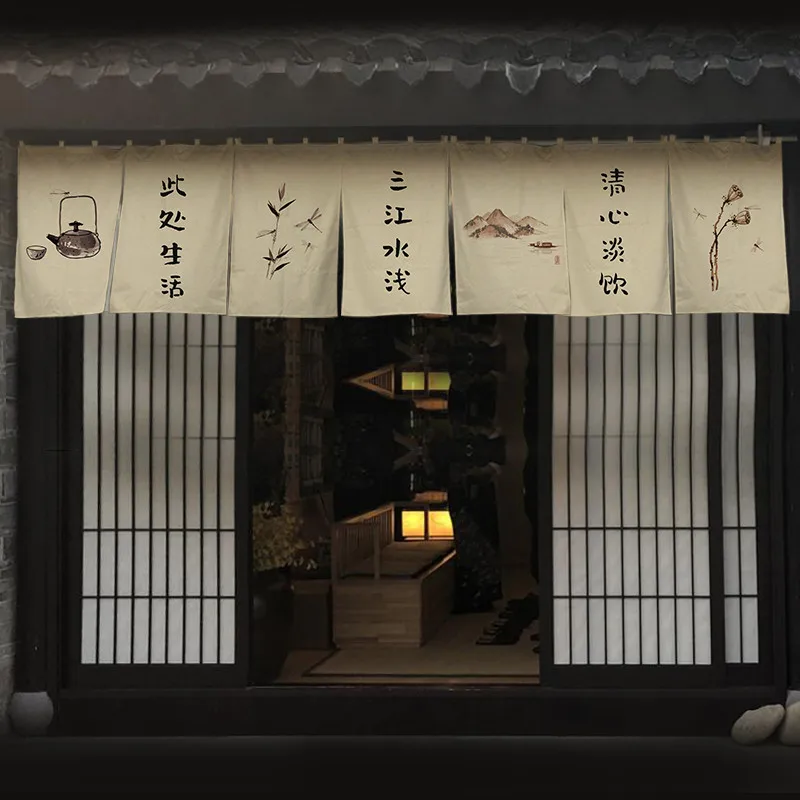 此处生活
三江水浅
清心淡饮